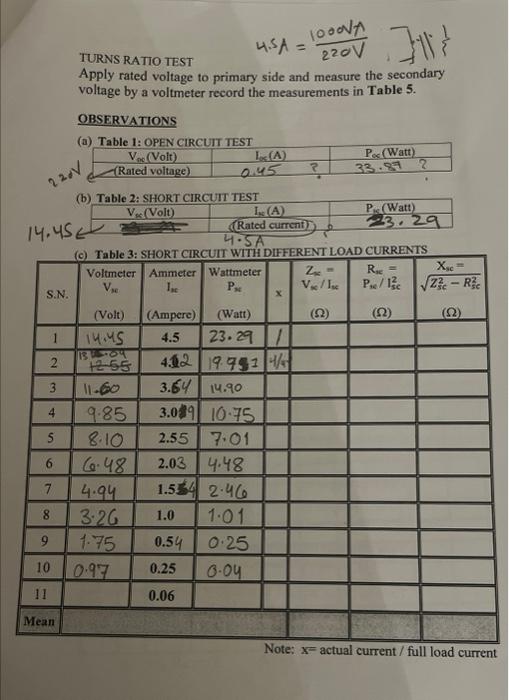 4.5A = 1000VA / 220V
TURNS RATIO TEST
Apply rated voltage to primary side and measure the secondary
voltage by a voltmeter record the measurements in Table 5.
OBSERVATIONS
(a) Table 1: OPEN CIRCUIT TEST
Voc (Volt) Ioc (A) Poc (Watt)
220V (Rated voltage) 0.45 ? 33.89 ?
(b) Table 2: SHORT CIRCUIT TEST
Vsc (Volt) Isc (A) Psc (Watt)
14.45 (Rated current) 23.29
4.5A
(c) Table 3: SHORT CIRCUIT WITH DIFFERENT LOAD CURRENTS
S.N. Voltmeter Vsc (Volt) Ammeter Isc (Ampere) Wattmeter Psc (Watt) x Zsc = Vsc / Isc (Ω) Rsc = Psc / I²sc (Ω) Xsc = √Z²sc − R²sc (Ω)
1 14.45 4.5 23.29 1
2 13.04 12.55 19.9
3 11.60 3.64 14.90
4 9.85 3.0 10.75
5 8.10 2.55 7.01
6 6.48 2.03 4.48
7 4.94 1.54 2.46
8 3.26 1.0 1.01
9 1.75 0.54 0.25
10 0.97 0.25 0.04
11 0.06
Mean
Note: x= actual current / full load current